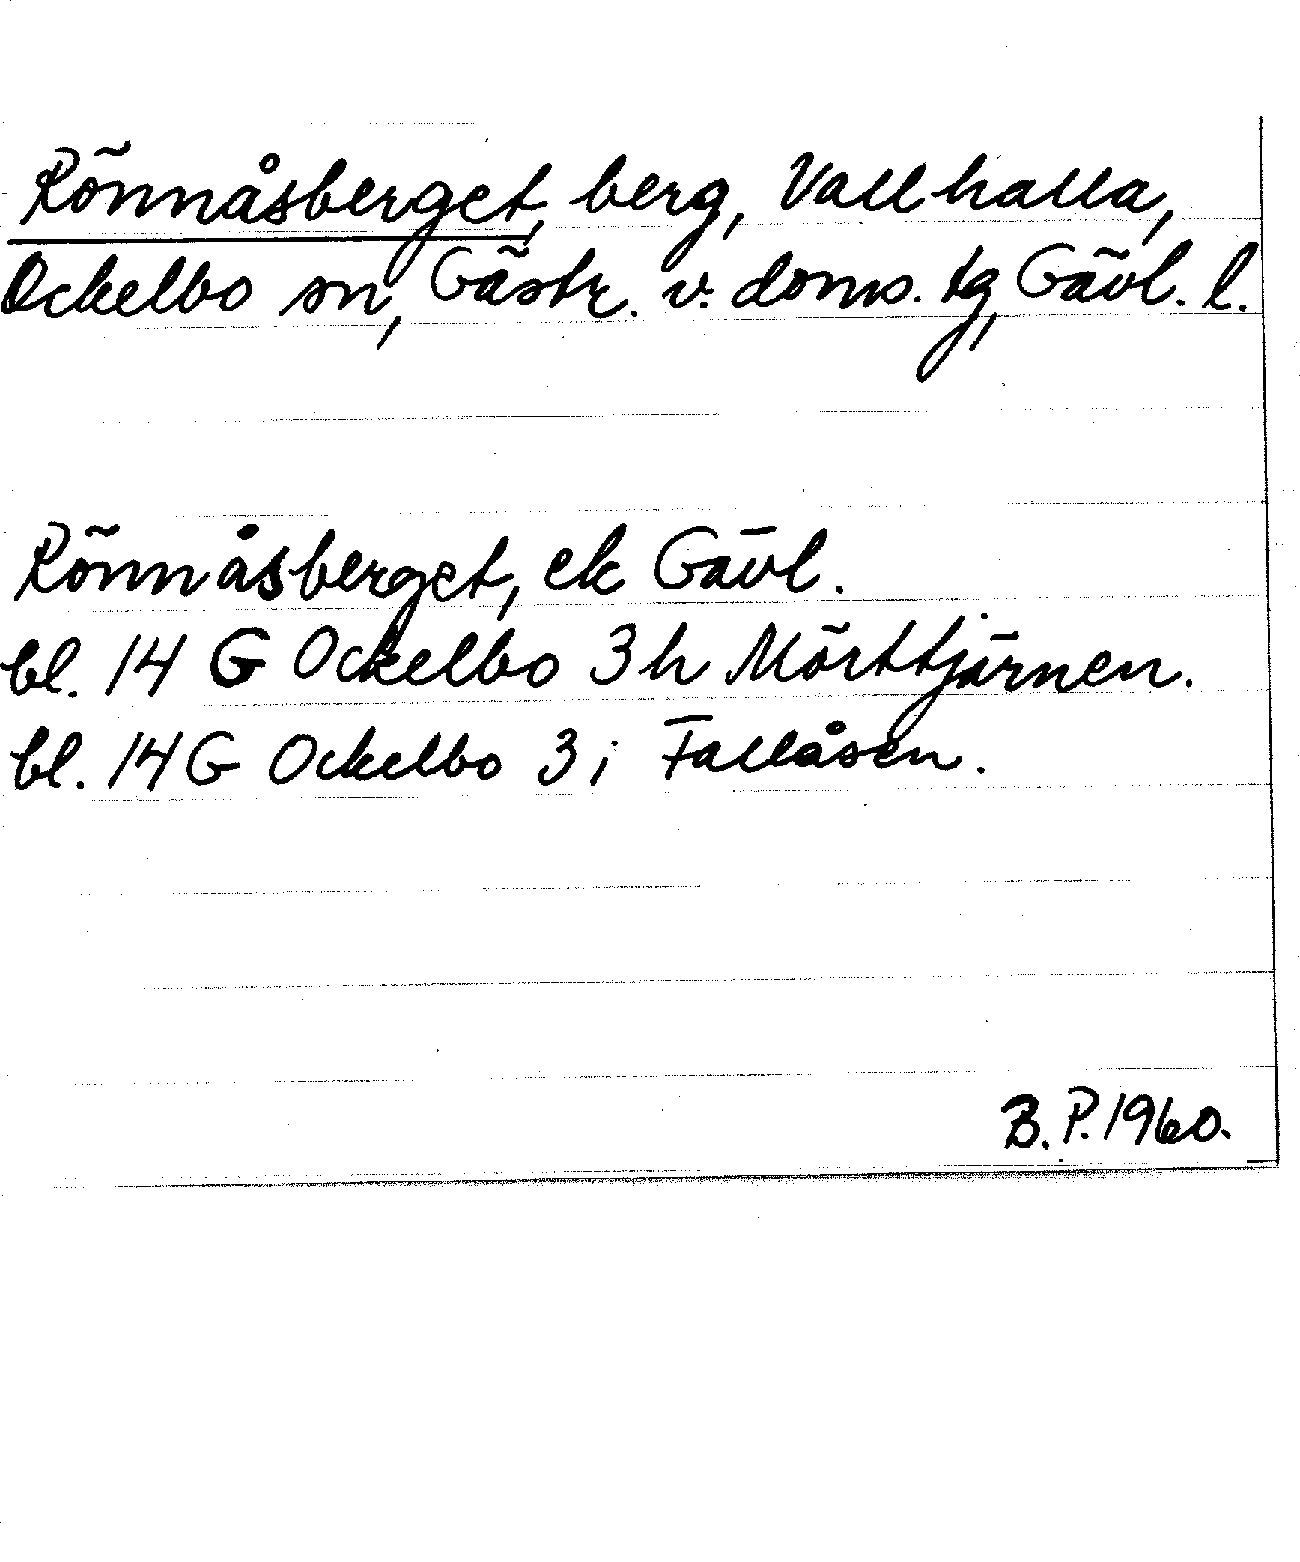 Rönnåsberget, berg, Vallhalla,
Ockelbo sn, Gästr. v. doms. tg, Gävl. l.
Rönnåsberget, ek Gävl.
bl. 14 G Ockelbo 3 h Mörttjärnen.
bl. 14 G Ockelbo 3 i Fallåsen.
B. P. 1960.